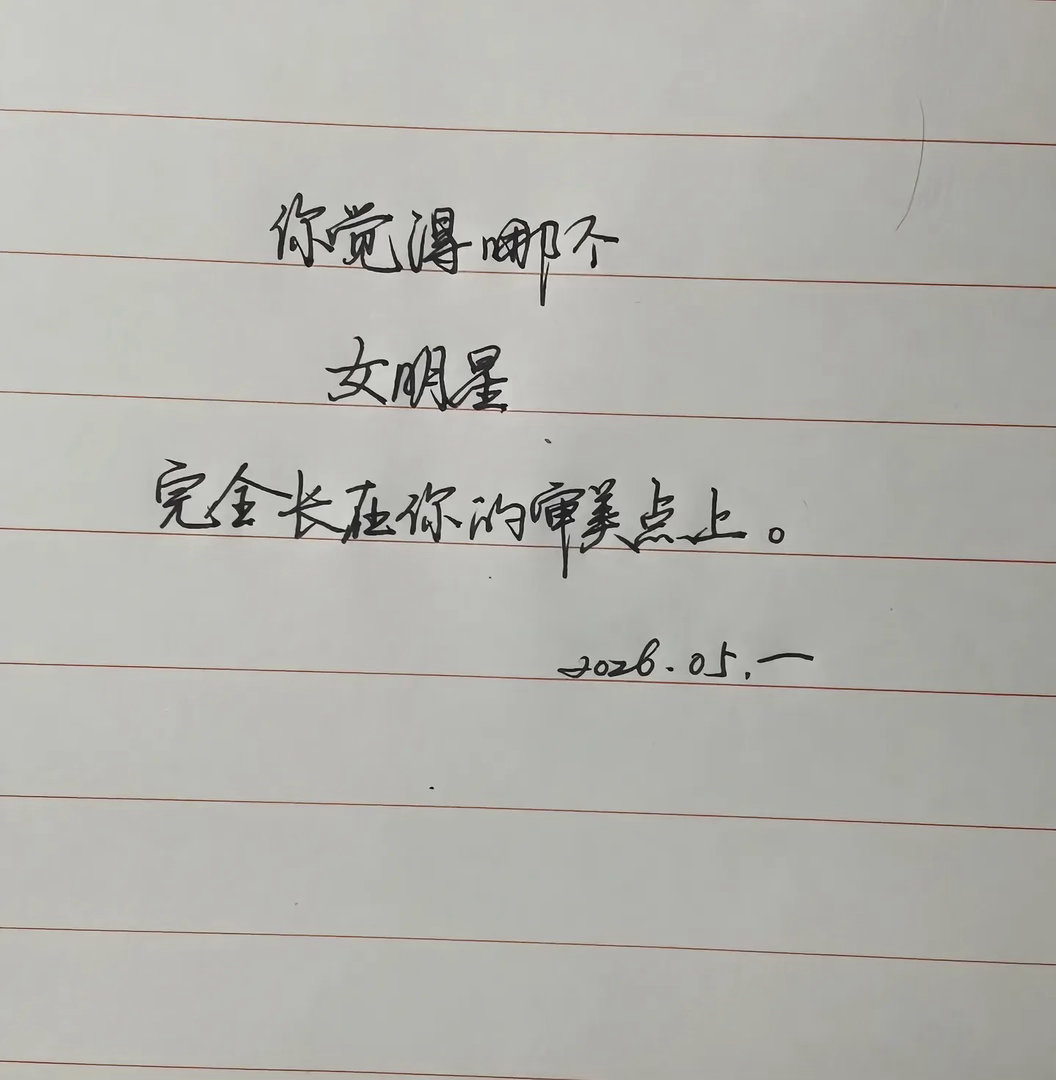 你觉得哪个
女明星
完全长在你的审美点上。
2026.05.一